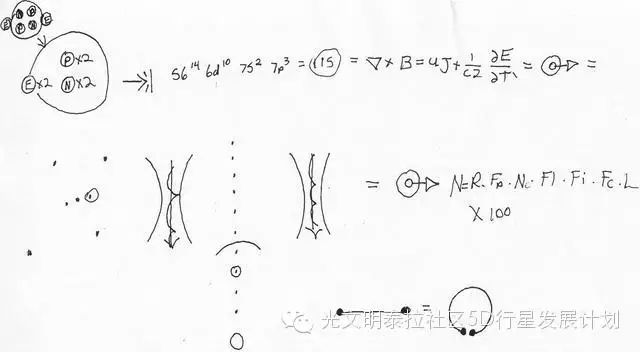 P x2
E x2 N x2
56¹⁴ 6d¹⁰ 7S² 7P³ = 115 = ∇ × B = uJ + 1/c2 ∂E/∂T = =
= N=R. Fp. Nc. Fl. Fi. Fc. L
X 100
=
光文明泰拉社区5D行星发展计划